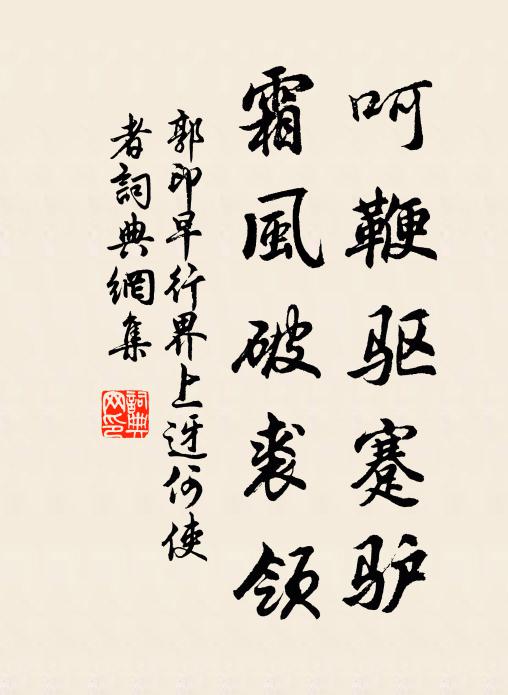 呵鞭驱蹇驴
霜風破裘领
郭印早行界上迓何使
者詞典網集
詞典网印